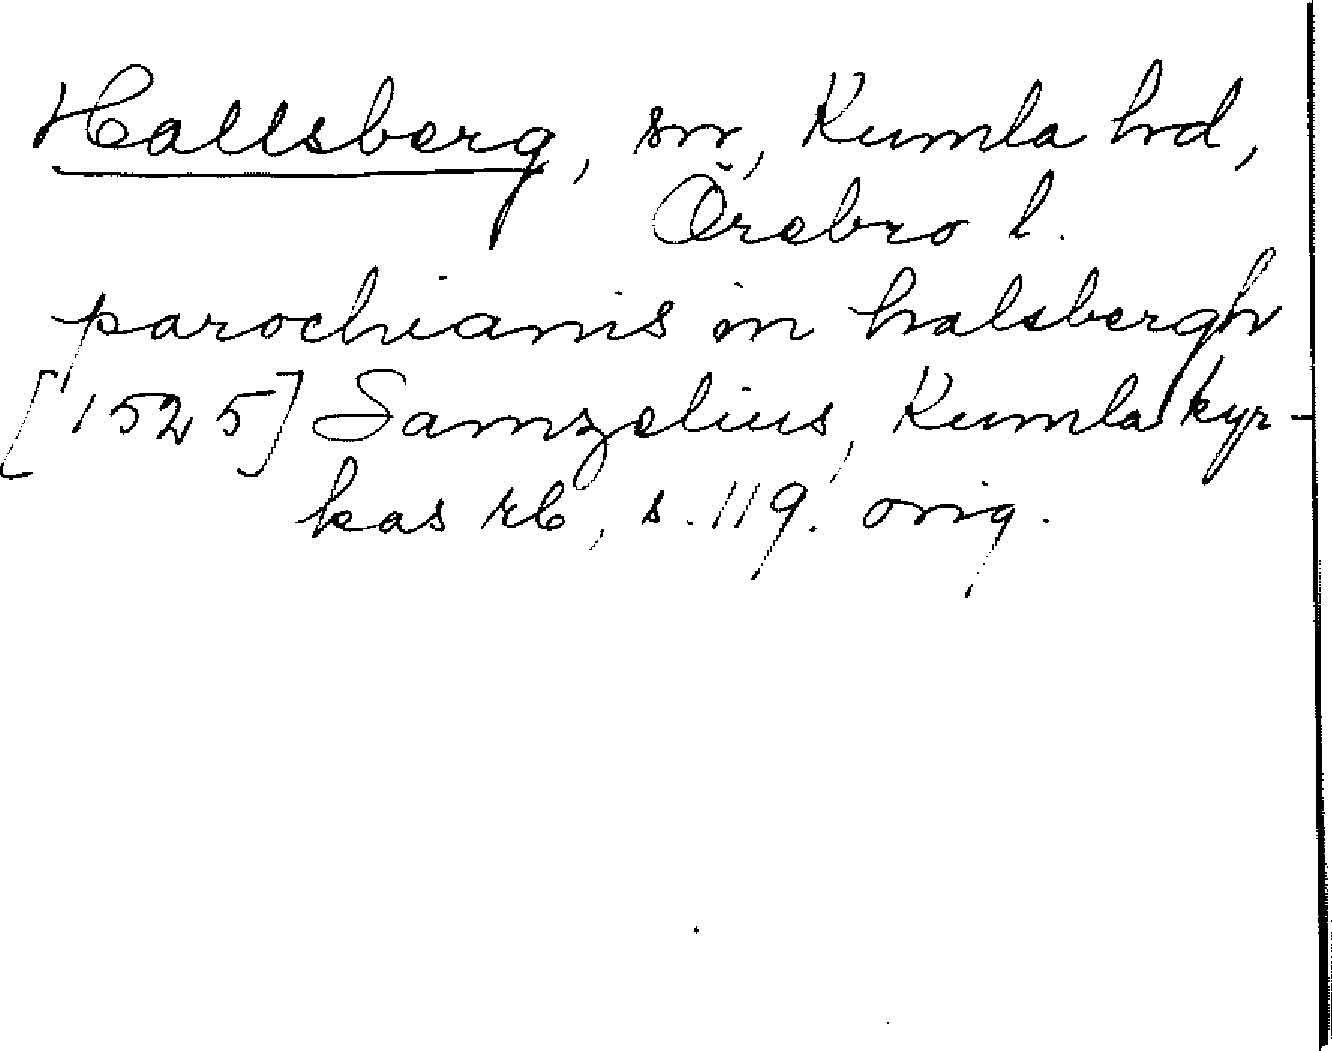 Hallsberg, sn, Kumla hd,
Örebro l.
parochianis in halsbergh
[1525] Samzelius, Kumla kyr-
kas rb, s. 119. orig.